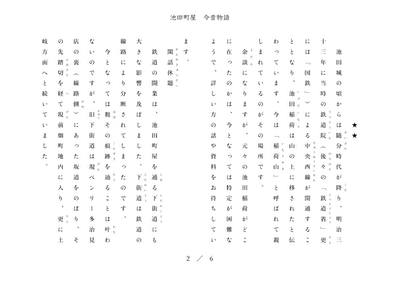 池田町屋 今昔物語
★ ★
池田城の頃から随分時代が降り、明治三
十三年に当時の鉄道院(後々の「鉄道省」更
には「国鉄」)による中央西線が開通するこ
ととなり、池田稲荷は山の上に移されたと伝
わっています。今は「稲荷山」と呼ばれて親
しまれているのがその場所です。
余談になりますが、元々の池田稲荷がどこ
に在ったのかは、今となっては特定が困難な
ようで、詳しい方の話や資料をお待ちしてい
ます。
閑話休題
鉄道の開業は、池田町屋を通る下街道にも
大きな影響を及ぼしました。下街道は鉄道の
線路により分断されてしまったのです。
今となっては殆その痕跡を辿ることは叶わ
ないのですが、旧下街道は現ベンリー多治見
店の裏(線路側)にあった坂道をのぼり、そ
の先踏切を経て現前畑町地内に入り、更に土
岐方面へと続いていました。
2 / 6